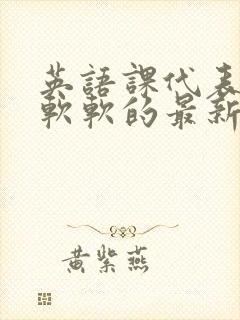 英語課代表
軟軟的最新
黃紫燕